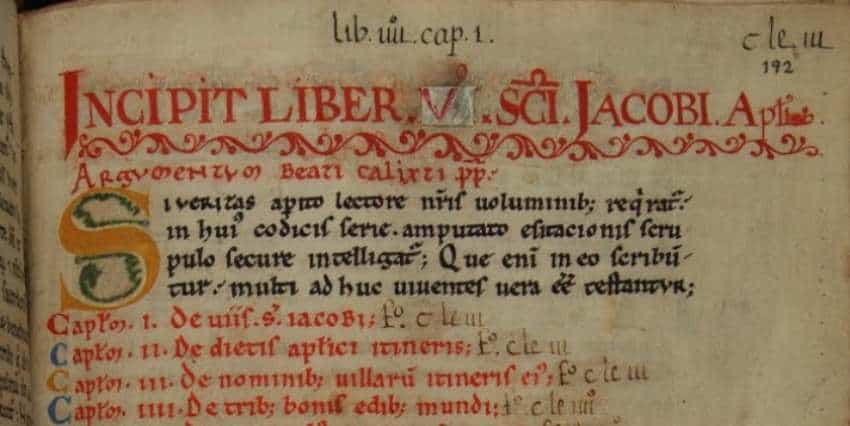 lib. iiii. cap. 1.
c le. iii
192
INCIPIT LIBER . V . SCI . JACOBI . Aptli.
Argumentum Beati Calixti pp.
SI veritas apito lectore nris uoluminib; reqrat.
in hui' codicis serie. amputato esitacionis scru
pulo secure intelligat; Que eni in eo scribu-
tur. multi ad huc uiuentes uera eē testantur;
Captm. I. De uiis. s. iacobi; fo. c le iii
Captm. II. De dietis aptici itineris; fo. c le iii
Captm. III. De nominib; uillarū itineris ei'; fo c le iii
Captm. IIII. De trib; bonis edib; mundi; fo c le iiii